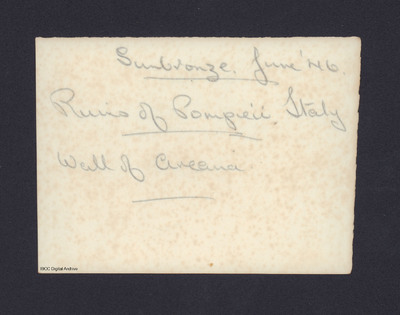 Sunbronze. June '46.
Ruins of Pompeii Italy
Wall of
IBCC Digital Archive